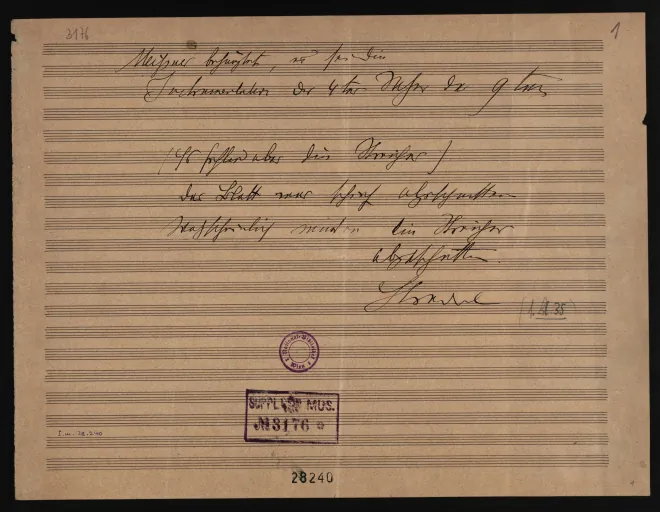 3176
1
Meißner behauptet, es sei die
Instrumentation der 4ten der 9ten
(Es fehlen aber die Streicher)
Das Blatt war schief abgeschnitten
Wahrscheinlich wurden die Streicher
abgeschnitten.
Stradal
35
National-Bibliothek
Wien
SUPPL. MUS.
№ 3176
28240